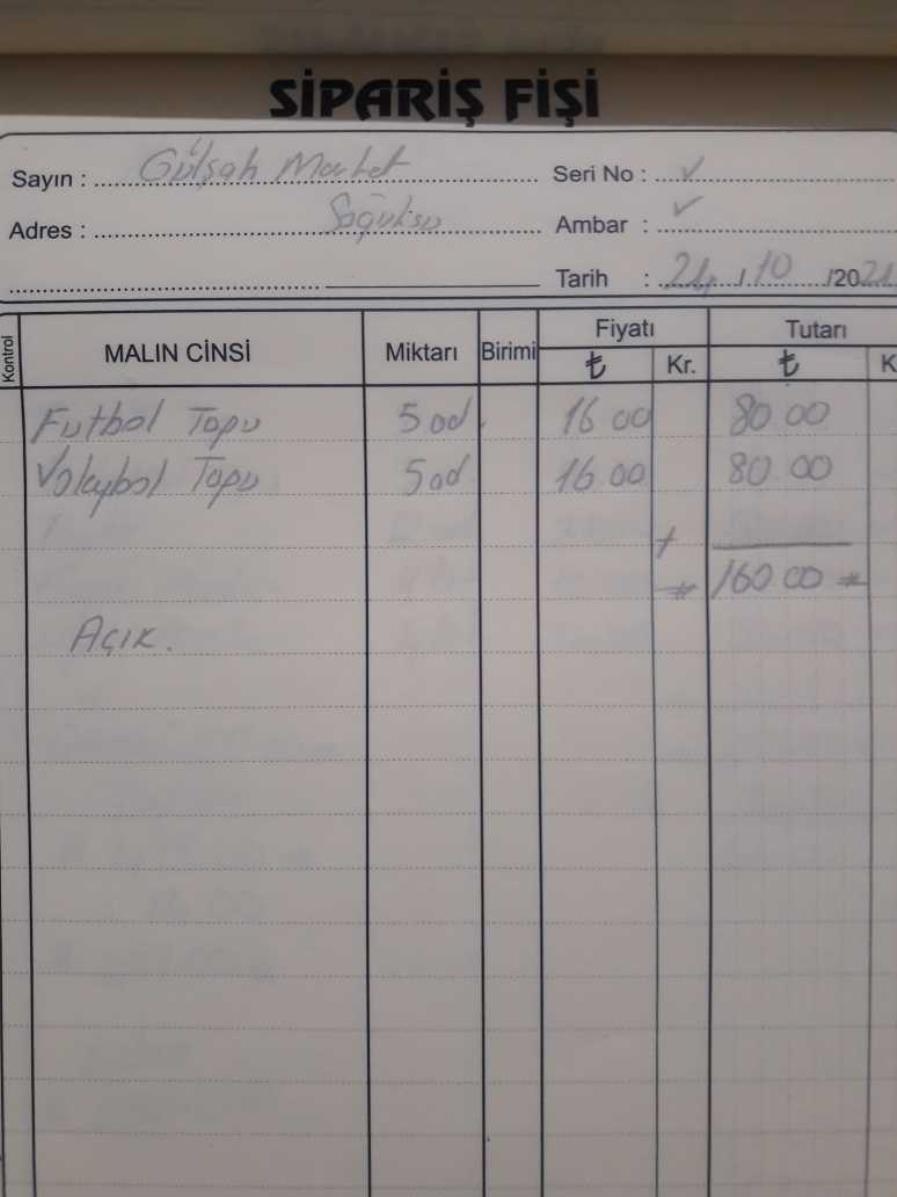 SİPARİŞ FİŞİ
Sayın : Gülşah Market Seri No : ✓
Adres : Soğuksu Ambar : ✓
Tarih : 24 / 10 /2021
Kontrol MALIN CİNSİ Miktarı Birimi Fiyatı ₺ Kr. Tutarı ₺ K
Futbol Topu 5 ad. 16 00 80 00
Voleybol Topu 5 ad 16.00 80.00
+
160 00
Açık.